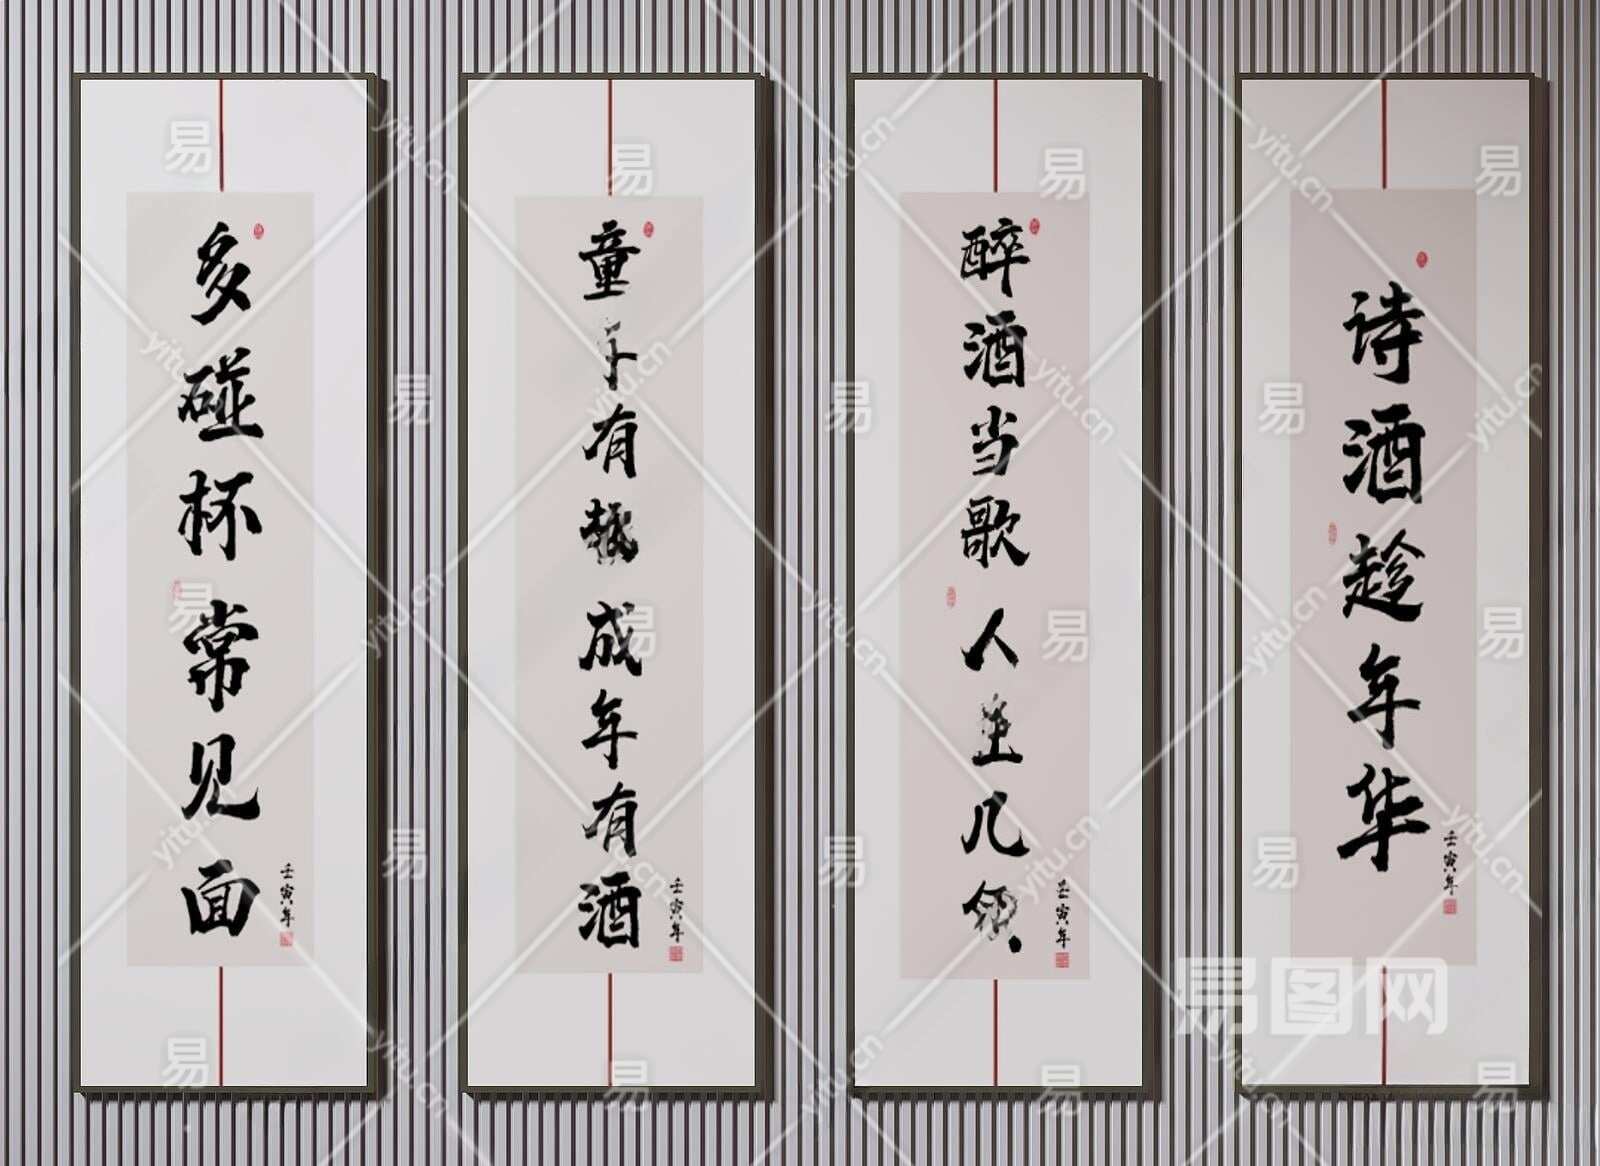 诗酒趁年华
壬寅年
醉酒当歌人几
壬寅年
童有成年有酒
壬寅年
多碰杯常见面
壬寅年
易图网
易
yitu.cn